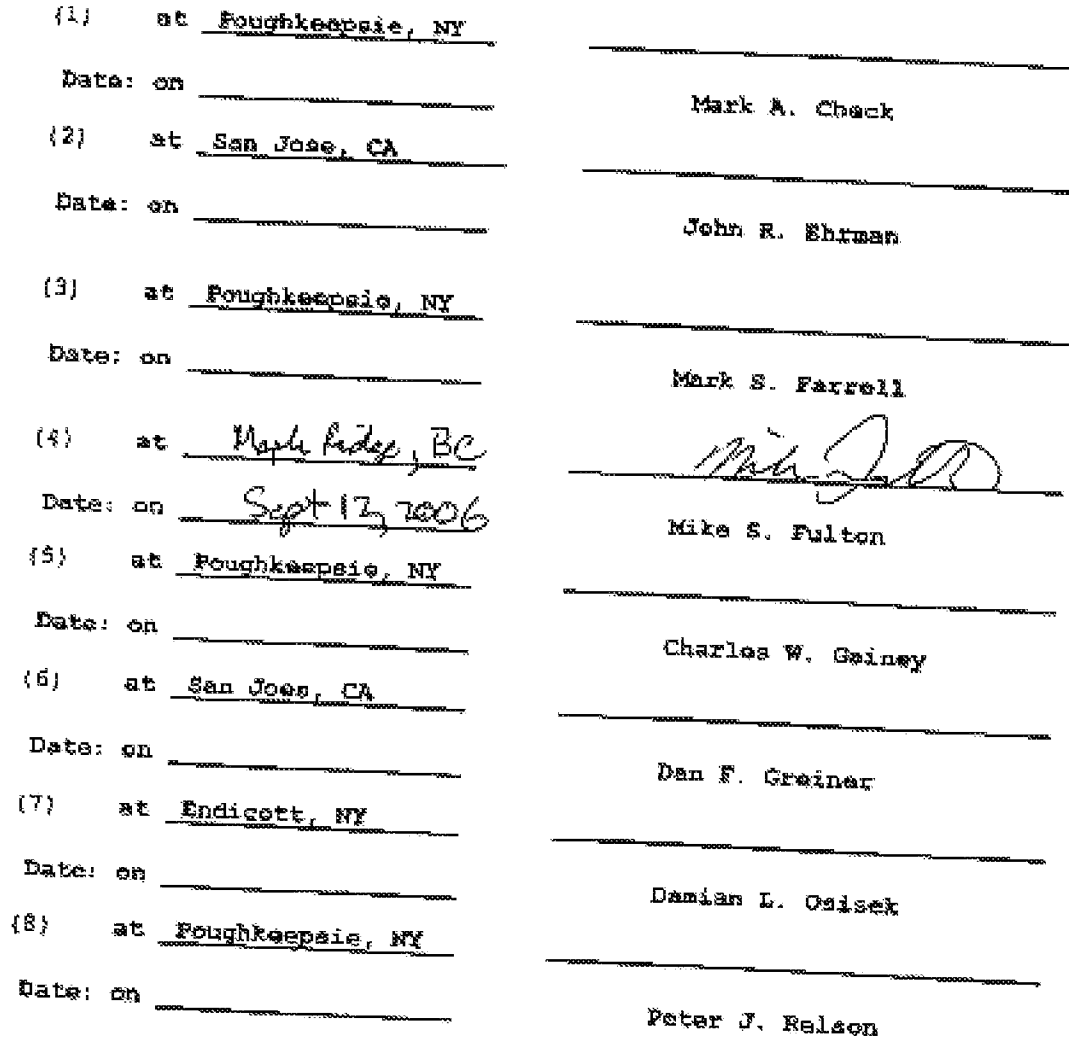 (1) at Poughkeepsie, NY
Date: on
Mark A. Check
(2) at San Jose, CA
Date: on
John R. Ehrman
(3) at Poughkeepsie, NY
Date: on
Mark S. Farrell
(4) at Maple Ridge, BC
Date: on Sept 12, 2006
Mike S. Fulton
(5) at Poughkeepsie, NY
Date: on
Charles W. Gainey
(6) at San Joes, CA
Date: on
Dan F. Greiner
(7) at Endicott, NY
Date: on
Damian L. Osisek
(8) at Poughkeepsie, NY
Date: on
Peter J. Relson